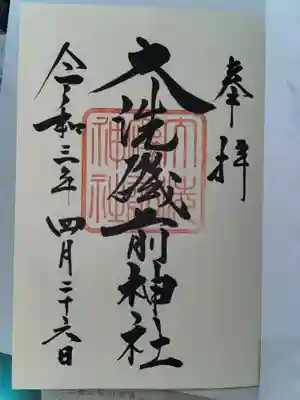 奉拝
大洗磯前神社
令和三年四月二十六日